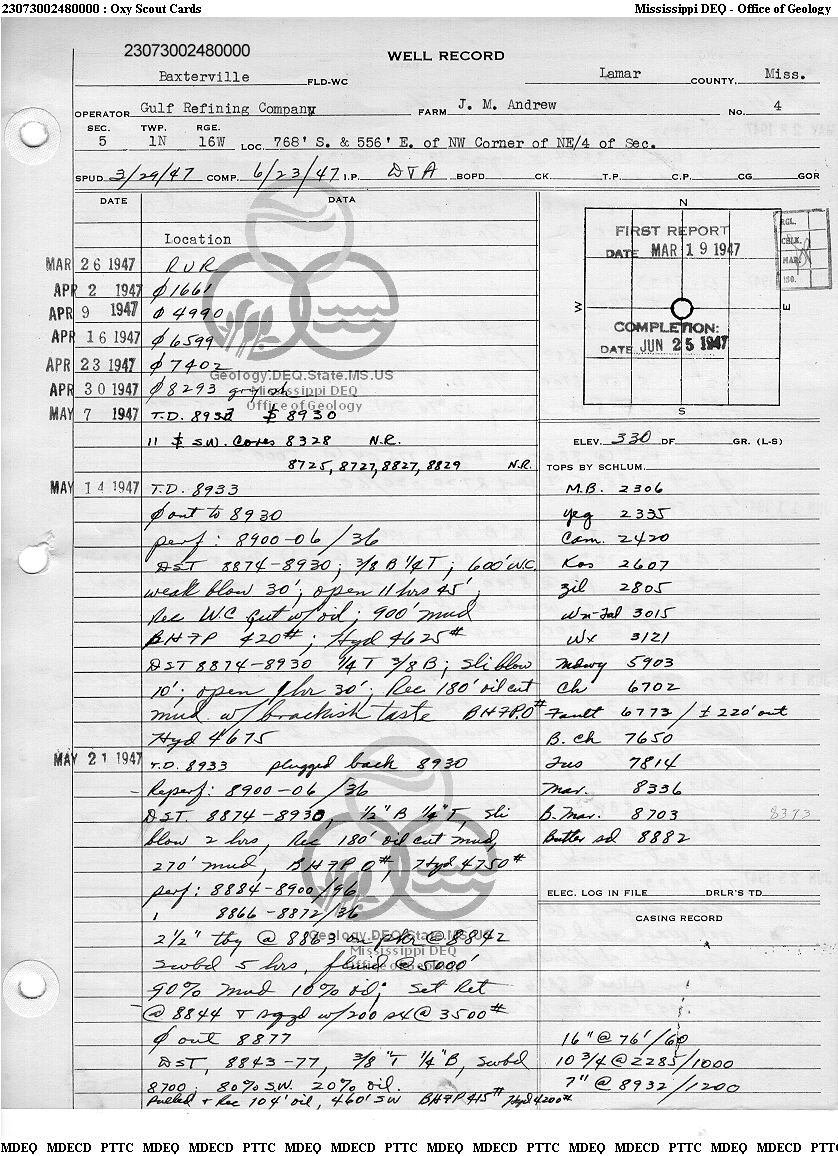 23073002480000 : Oxy Scout Cards Mississippi DEQ - Office of Geology
23073002480000
WELL RECORD
Baxterville FLD-WC Lamar COUNTY, Miss.
OPERATOR Gulf Refining Company FARM J. M. Andrew No. 4
SEC. TWP. RGE.
5 1N 16W LOC. 768' S. & 556' E. of NW Corner of NE/4 of Sec.
SPUD 3/29/47 COMP. 6/23/47 I.P. D&A BOPD CK. T.P. C.P. CG GOR
DATE DATA
Location
MAR 26 1947 RUR
APR 2 1947 ∅ 1661
APR 9 1947 ∅ 4990
APR 16 1947 ∅ 6599
APR 23 1947 ∅ 7402
APR 30 1947 ∅ 8293 gry sh
MAY 7 1947 T.D. 8933 $ 8930
11 $ SW. Cores 8328 N.R.
8725, 8727, 8827, 8829 N.R.
MAY 14 1947 T.D. 8933
∅ out to 8930
perf: 8900-06/36
DST 8874-8930; 3/8 B 1/4 T; 600' WC
weak blow 30'; open 11 hrs 45';
Rec W.C cut w/ oil; 900' mud
BHFP 420#; Hyd 4625#
DST 8874-8930 1/4 T 3/8 B; Sli blow
10'; open 1 hr 30'; Rec 180' oil cut
mud w/ brackish taste BHFP 0#
Hyd 4675
MAY 21 1947 T.D. 8933 plugged back 8930
- Reperf: 8900-06/36
DST 8874-8930, 1/2" B 1/4" T, Sli
blow 2 hrs, Rec 180' oil cut mud,
270' mud, BHFP 0#, Hyd 4750#
perf: 8884-8900/96
8866-8872/36
2 1/2" tbg @ 8863 on pkr @ 8842
Swbd 5 hrs, fluid @ 5000'
90% mud 10% oil; Set Ret
@ 8844 & sqzd w/200 sx @ 3500#
∅ out 8877
DST, 8843-77, 3/8" T 1/4" B, Swbd
8700; 80% S.W. 20% oil.
Pulled & Rec 104' oil, 460' SW BHFP 415# Hyd 4200#
N
FIRST REPORT
DATE MAR 19 1947
W E
COMPLETION:
DATE JUN 25 1947
S
RGL.
CHLK.
MAR.
ISO.
ELEV. 330 DF GR. (L-S)
TOPS BY SCHLUM.
M.B. 2306
Yeg 2335
Cam. 2420
Kos 2607
Zil 2805
Wx-Tal 3015
Wx 3121
Mdwy 5903
Ch 6702
Fault 6773/±220' out
B. Ch 7650
Tus 7814
Mar. 8336
B. Mar. 8703 8393
Butler sd 8882
ELEC. LOG IN FILE DRLR'S TD
CASING RECORD
16" @ 76'/60
10 3/4 @ 2285/1000
7" @ 8932/1200
Geology.DEQ.State.MS.US
Mississippi DEQ
Office of Geology
Geology.DEQ.State.MS.US
Mississippi DEQ
Office of Geology
MDEQ MDECD PTTC MDEQ MDECD PTTC MDEQ MDECD PTTC MDEQ MDECD PTTC MDEQ MDECD PTTC MDEQ MDECD PTT